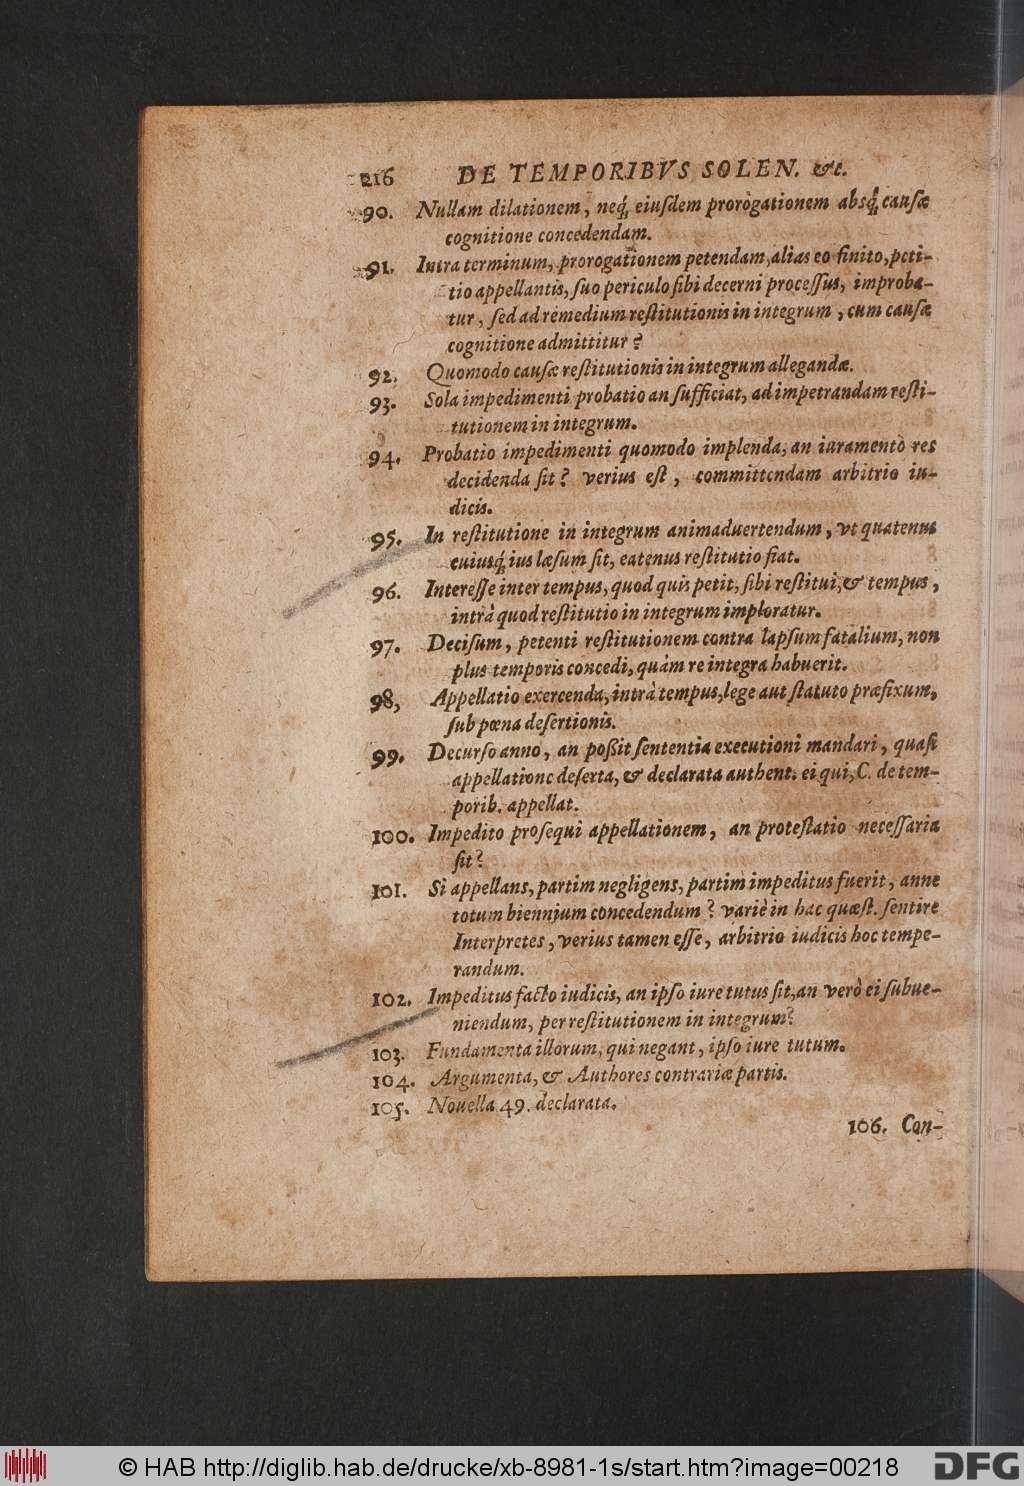 216 DE TEMPORIBVS SOLEN. &c.
90. Nullam dilationem, neq́; eiusdem prorògationem absq́; causæ
cognitione concedendam.
91. Intra terminum, prorogationem petendam, alias eo finito, peti-
tio appellantis, suo periculo sibi decerni processus, improba-
tur, sed ad remedium restitutionis in integrum, cum causæ
cognitione admittitur?
92. Quomodo causæ restitutionis in integrum allegandæ.
93. Sola impedimenti probatio an sufficiat, ad impetrandam resti-
tutionem in integrum.
94. Probatio impedimenti quomodo implenda, an iuramentò res
decidenda sit? verius est, committendam arbitrio iu-
dicis.
95. In restitutione in integrum animaduertendum, vt quatenus
cuiusq́; ius læsum sit, eatenus restitutio fiat.
96. Interesse inter tempus, quod quis petit, sibi restitui, & tempus,
intrà quod restitutio in integrum imploratur.
97. Decisum, petenti restitutionem contra lapsum fatalium, non
plus temporis concedi, quàm re integra habuerit.
98, Appellatio exercenda, intrà tempus, lege aut statuto præfixum,
sub pœna desertionis.
99. Decurso anno, an poßit sententia executioni mandari, quasi
appellatione deserta, & declarata authent. ei qui, C. de tem-
porib. appellat.
100. Impedito prosequi appellationem, an protestatio necessaria
sit?
101. Si appellans, partim negligens, partim impeditus fuerit, anne
totum biennium concedendum? variè in hac quæst. sentire
Interpretes, verius tamen esse, arbitrio iudicis hoc tempe-
randum.
102. Impeditus facto iudicis, an ipso iure tutus sit, an verò ei subue-
niendum, per restitutionem in integrum?
103. Fundamenta illorum, qui negant, ipso iure tutum.
104. Argumenta, & Authores contrariæ partis.
105. Nouella 49. declarata.
106. Con-
© HAB http://diglib.hab.de/drucke/xb-8981-1s/start.htm?image=00218
DFG